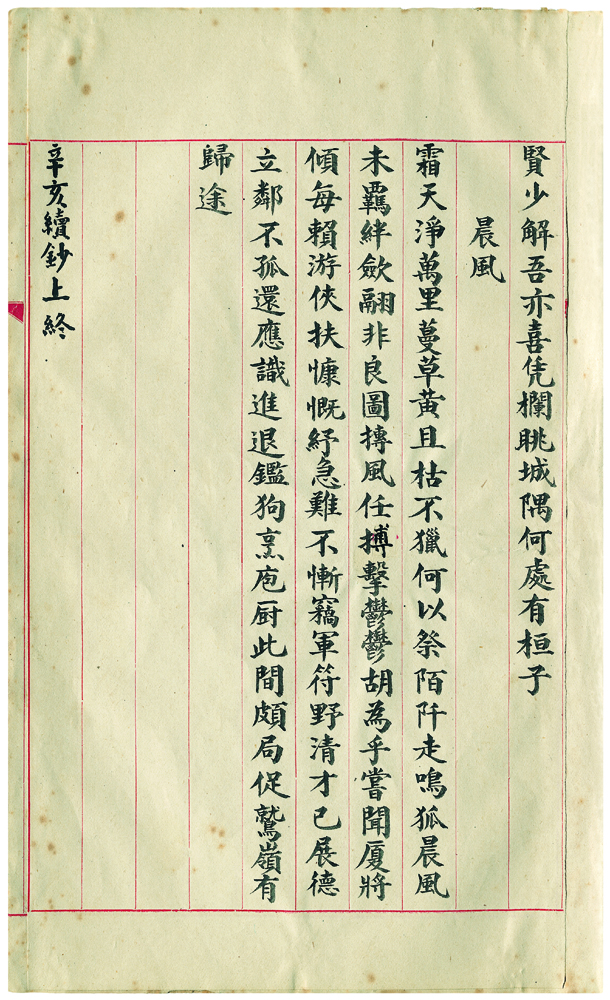 賢少解吾亦喜凭欄眺城隅何處有桓子
晨風
霜天淨萬里蔓草黃且枯不獵何以祭陌阡走鳴狐晨風
未羈絆歛翮非良圖摶風任搏擊鬱鬱胡為乎嘗聞廈將
傾每賴游俠扶慷慨紓急難不慚竊軍符野清才已展德
立鄰不孤還應識進退鑑狗烹庖厨此間頗局促鷲嶺有
歸途
辛亥續鈔上終